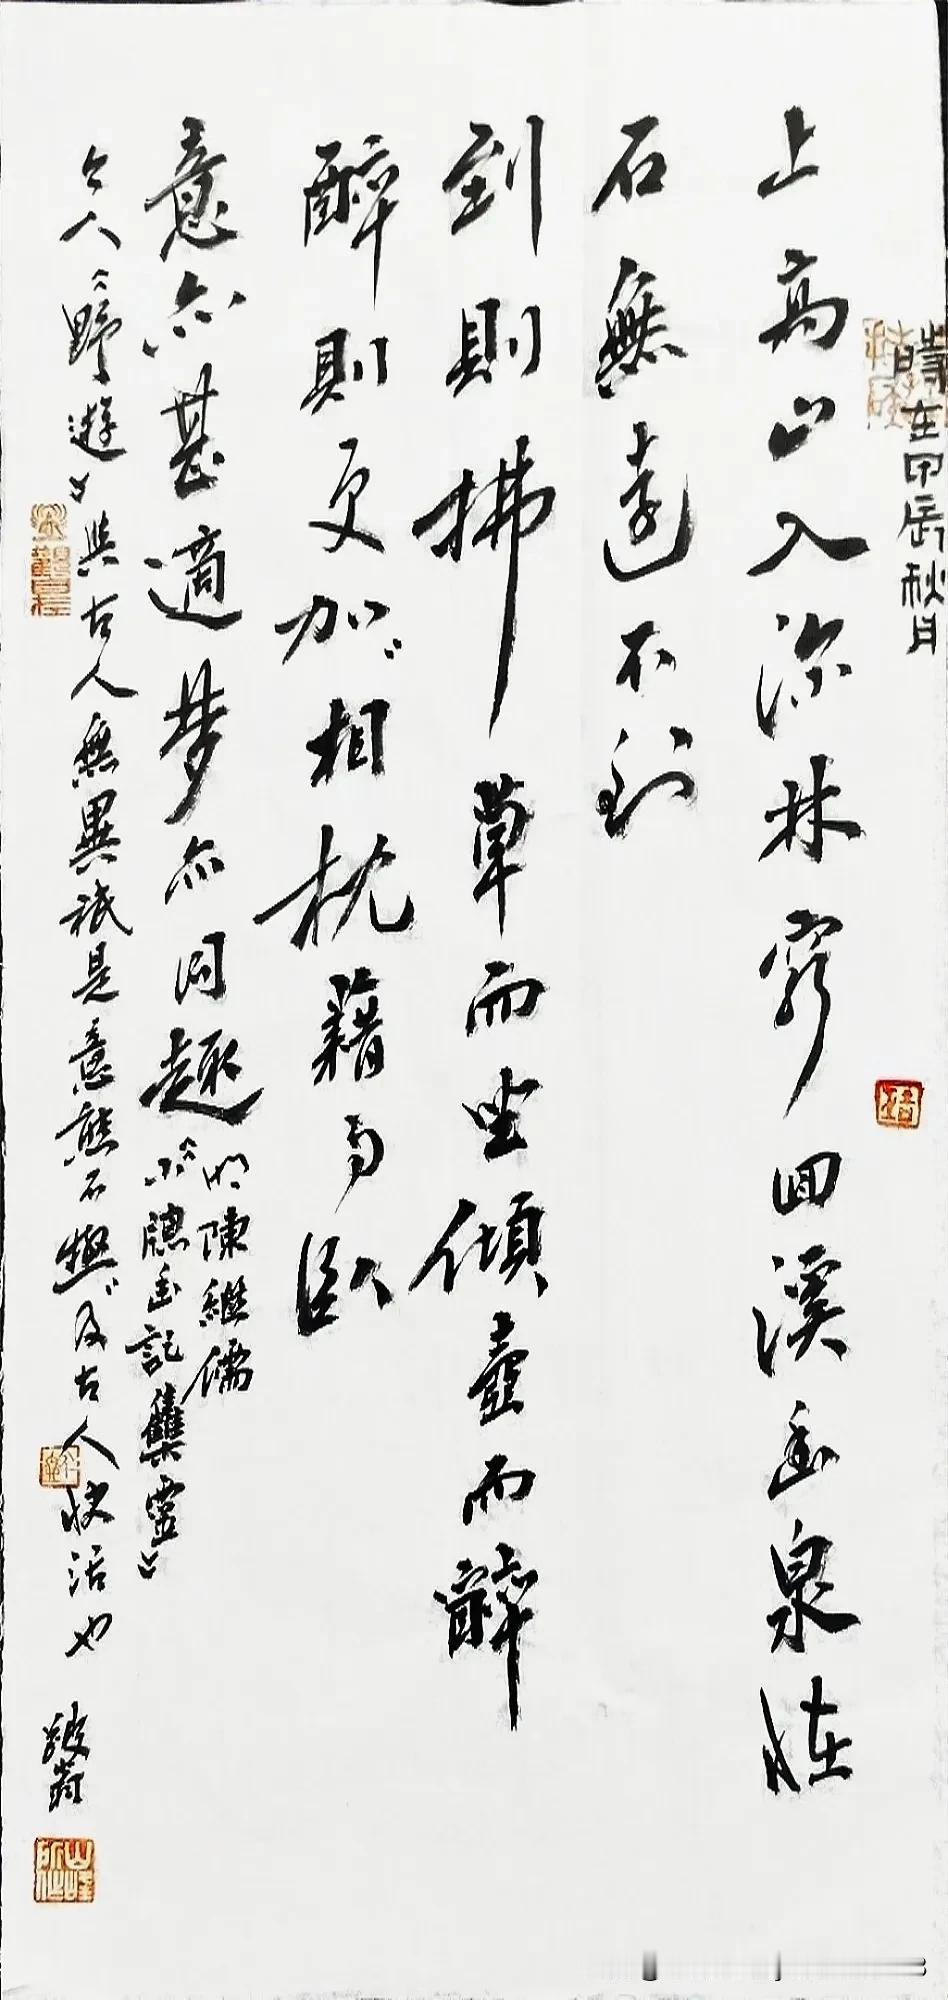 時在甲辰秋月
上高山入深林窮回溪幽泉怪
石無遠不到
到則拂草而坐傾壺而醉
醉則更加相枕藉以臥
意亦甚適夢亦同趣
明陳繼儒
《小窗幽記集靈》
今人《野遊》與古人無異祇是意態不無及古人快活也